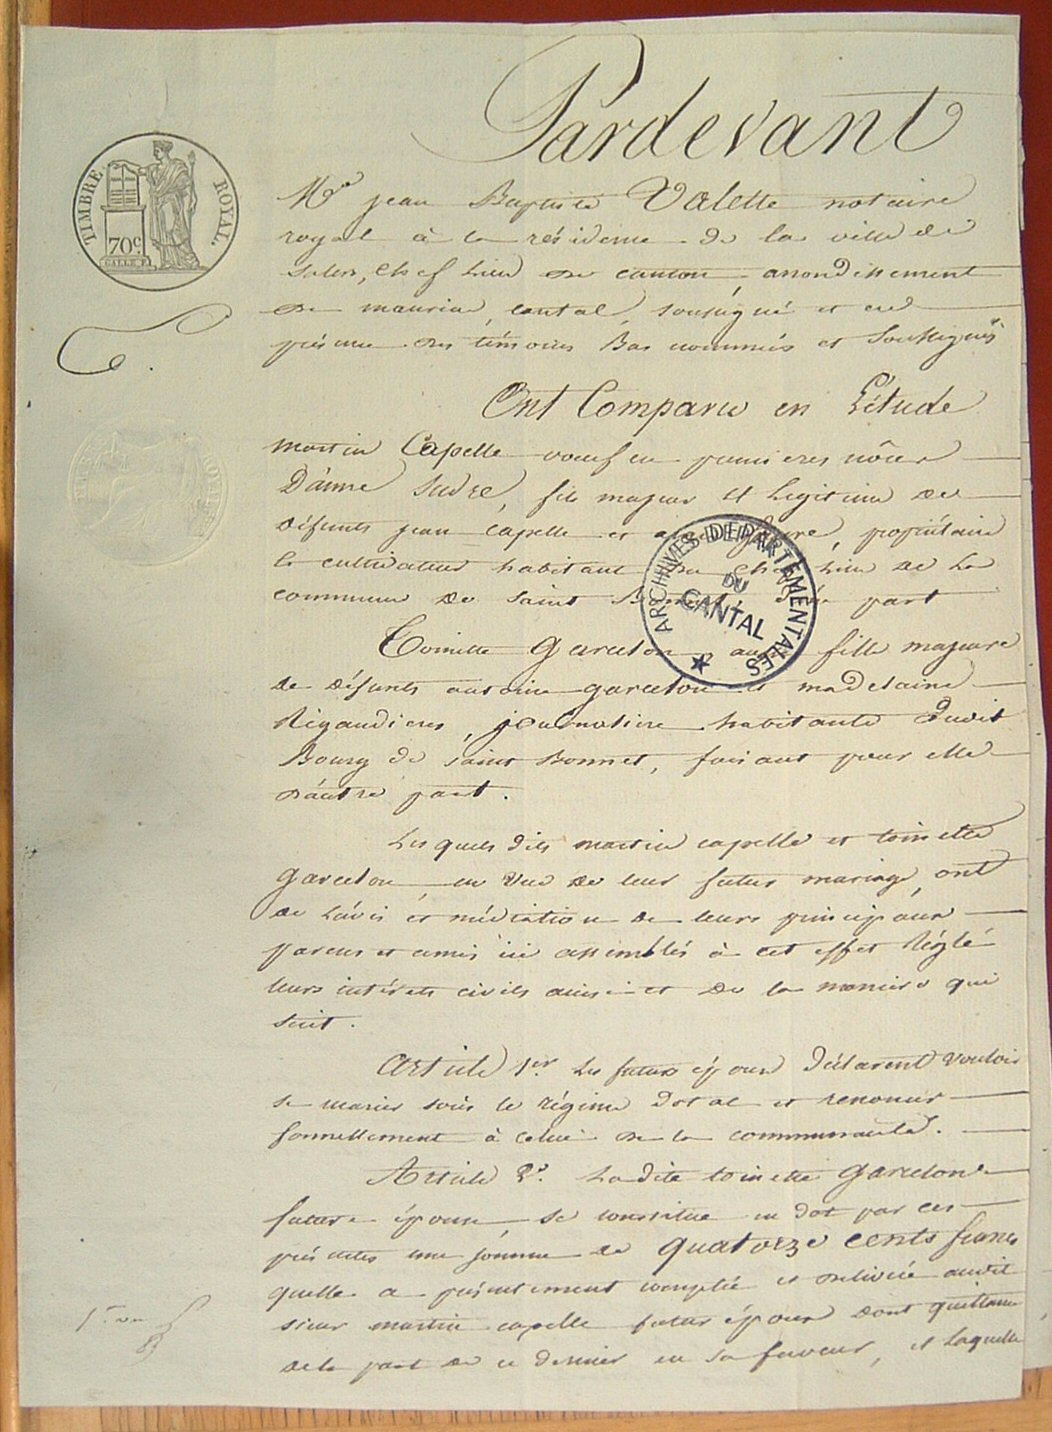 Pardevant
Me jean Baptiste Valette notaire
royal à la résidence de la ville de
Salers, chef lieu de canton, arrondissement
de mauriac, cantal, soussigné et en
présence des témoins Bas nommés et Soussignés
Ont Comparu en L'étude
martin Capelle veuf en premieres nôces
D'anne Sudre, fils majeur et Legitime de
défunts jean capelle et propriétaire
et cultivateur habitant du chef lieu de la
commune de Saint part
Toinette Garcelon, fille majeure
de défunts antoine garcelon et madelaine
Rigaudieres, journaliere habitante dudit
Bourg de saint Bonnet, faisant pour elle
d'autre part.
Lesquels dits martin capelle et toinette
garcelon, en vue de leur futur mariage, ont
de L'avis et médiation de leurs principaux
parens et amis ici assemblés à cet effet Réglé
leurs intérêts civils ainsi et de la maniere qui
suit.
Article 1er. Les futurs époux déclarent vouloir
se marier sous le régime dotal et renoncer
formellement à celui de la communauté.
Article 2e. Ladite toinette Garcelon
future épouse, se constitue en dot par ces
présentes une somme de quatorze cents francs
quelle a présentement comptée et délivrée audit
sieur martin capelle futur époux dont quittance
de la part de ce dernier en sa faveur, et laquelle
TIMBRE ROYAL
70c
ARCHIVES DEPARTEMENTALES
DU
CANTAL